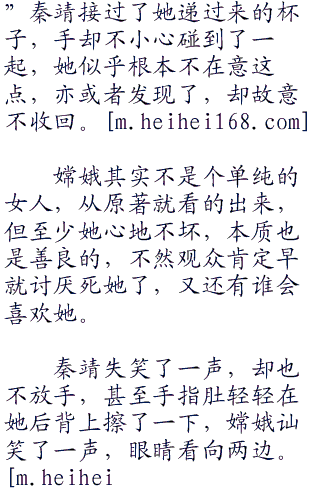 ”秦靖接过了她递过来的杯
子，手却不小心碰到了一
起，她似乎根本不在意这
点，亦或者发现了，却故意
不收回。[m.heihei168.com]
嫦娥其实不是个单纯的
女人，从原著就看的出来，
但至少她心地不坏，本质也
是善良的，不然观众肯定早
就讨厌死她了，又还有谁会
喜欢她。
秦靖失笑了一声，却也
不放手，甚至手指肚轻轻在
她后背上擦了一下，嫦娥讪
笑了一声，眼睛看向两边。
[m.heihei